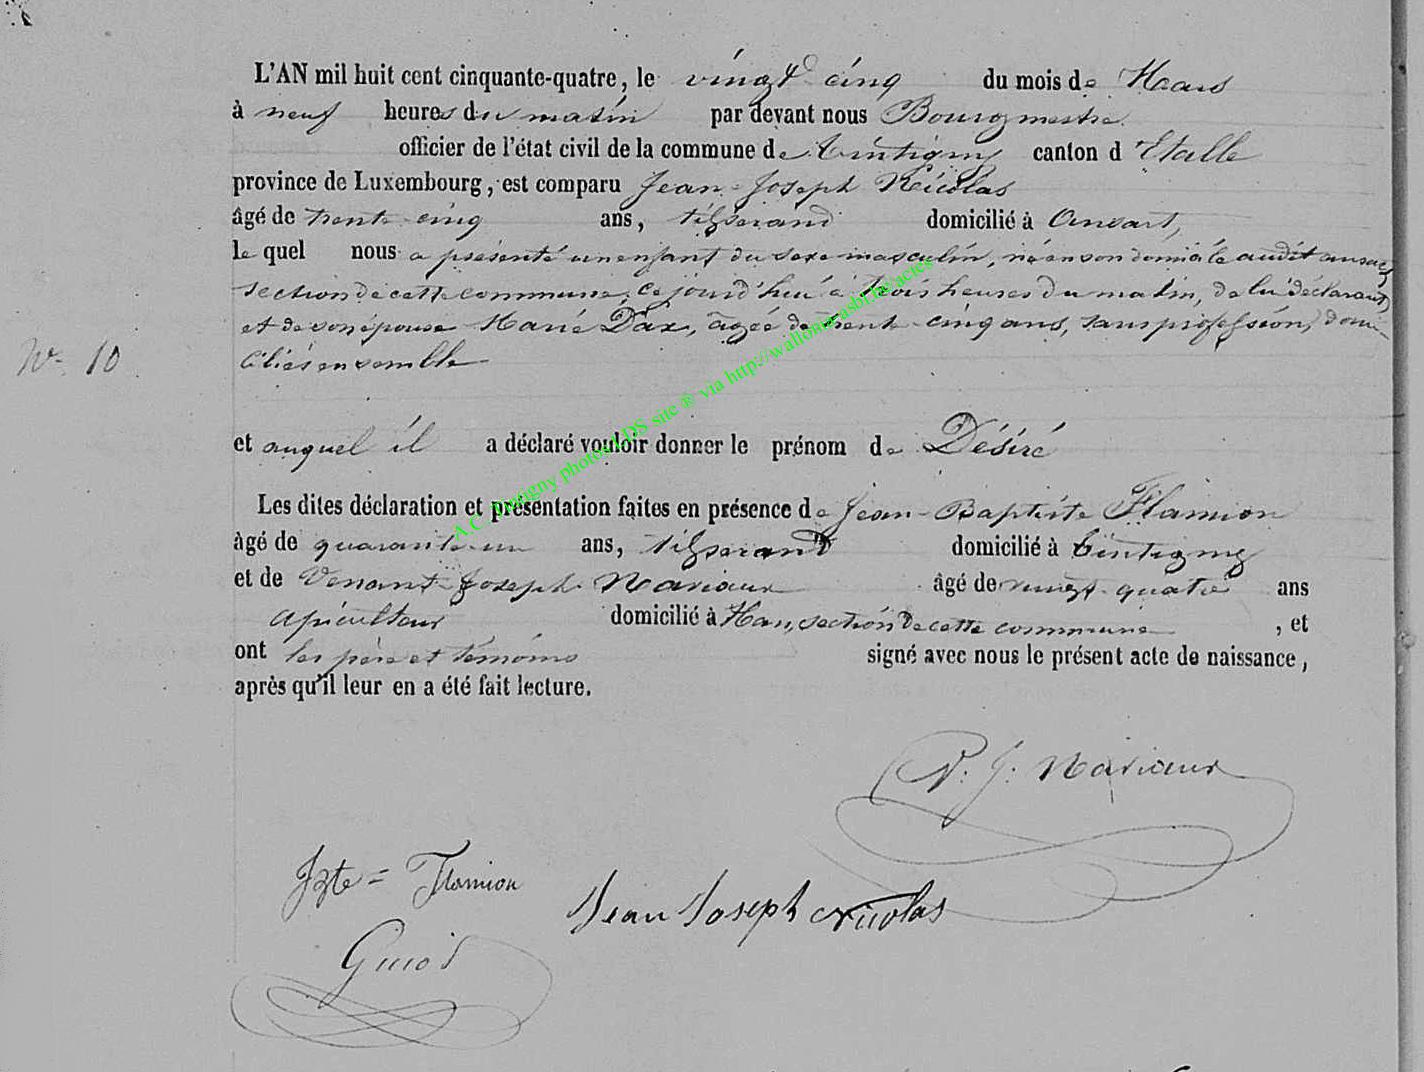 L'AN mil huit cent cinquante-quatre, le vingt cinq du mois de Mars
à neuf heures du matin par devant nous Bourgmestre
officier de l'état civil de la commune de tintigny canton d'Etalle
province de Luxembourg, est comparu Jean-Joseph Nicolas
âgé de trente-cinq ans, tisserand domicilié à Ansart,
lequel nous a présenté un enfant du sexe masculin, né en son domicile audit ansart,
section de cette commune, ce jourd'hui à trois heures du matin, de lui déclarant,
et de son épouse Marie Dax, âgée de trente-cinq ans, sans profession, domi-
N° 10
ciliés ensemble
et auquel il a déclaré vouloir donner le prénom de Désiré
Les dites déclaration et présentation faites en présence de Jean-Baptiste Flamion
âgé de quarante-un ans, tisserand domicilié à tintigny
et de Venant-Joseph Nariaux âgé de vingt-quatre ans
apiculteur domicilié à Han, section de cette commune, et
ont les père et témoins signé avec nous le présent acte de naissance,
après qu'il leur en a été fait lecture.
V. J. Nariaux
Jbte= Flamion
Jean Joseph Nicolas
A.C. Tintigny photos LDS site ® via http://wallonia-asbl.be/actes